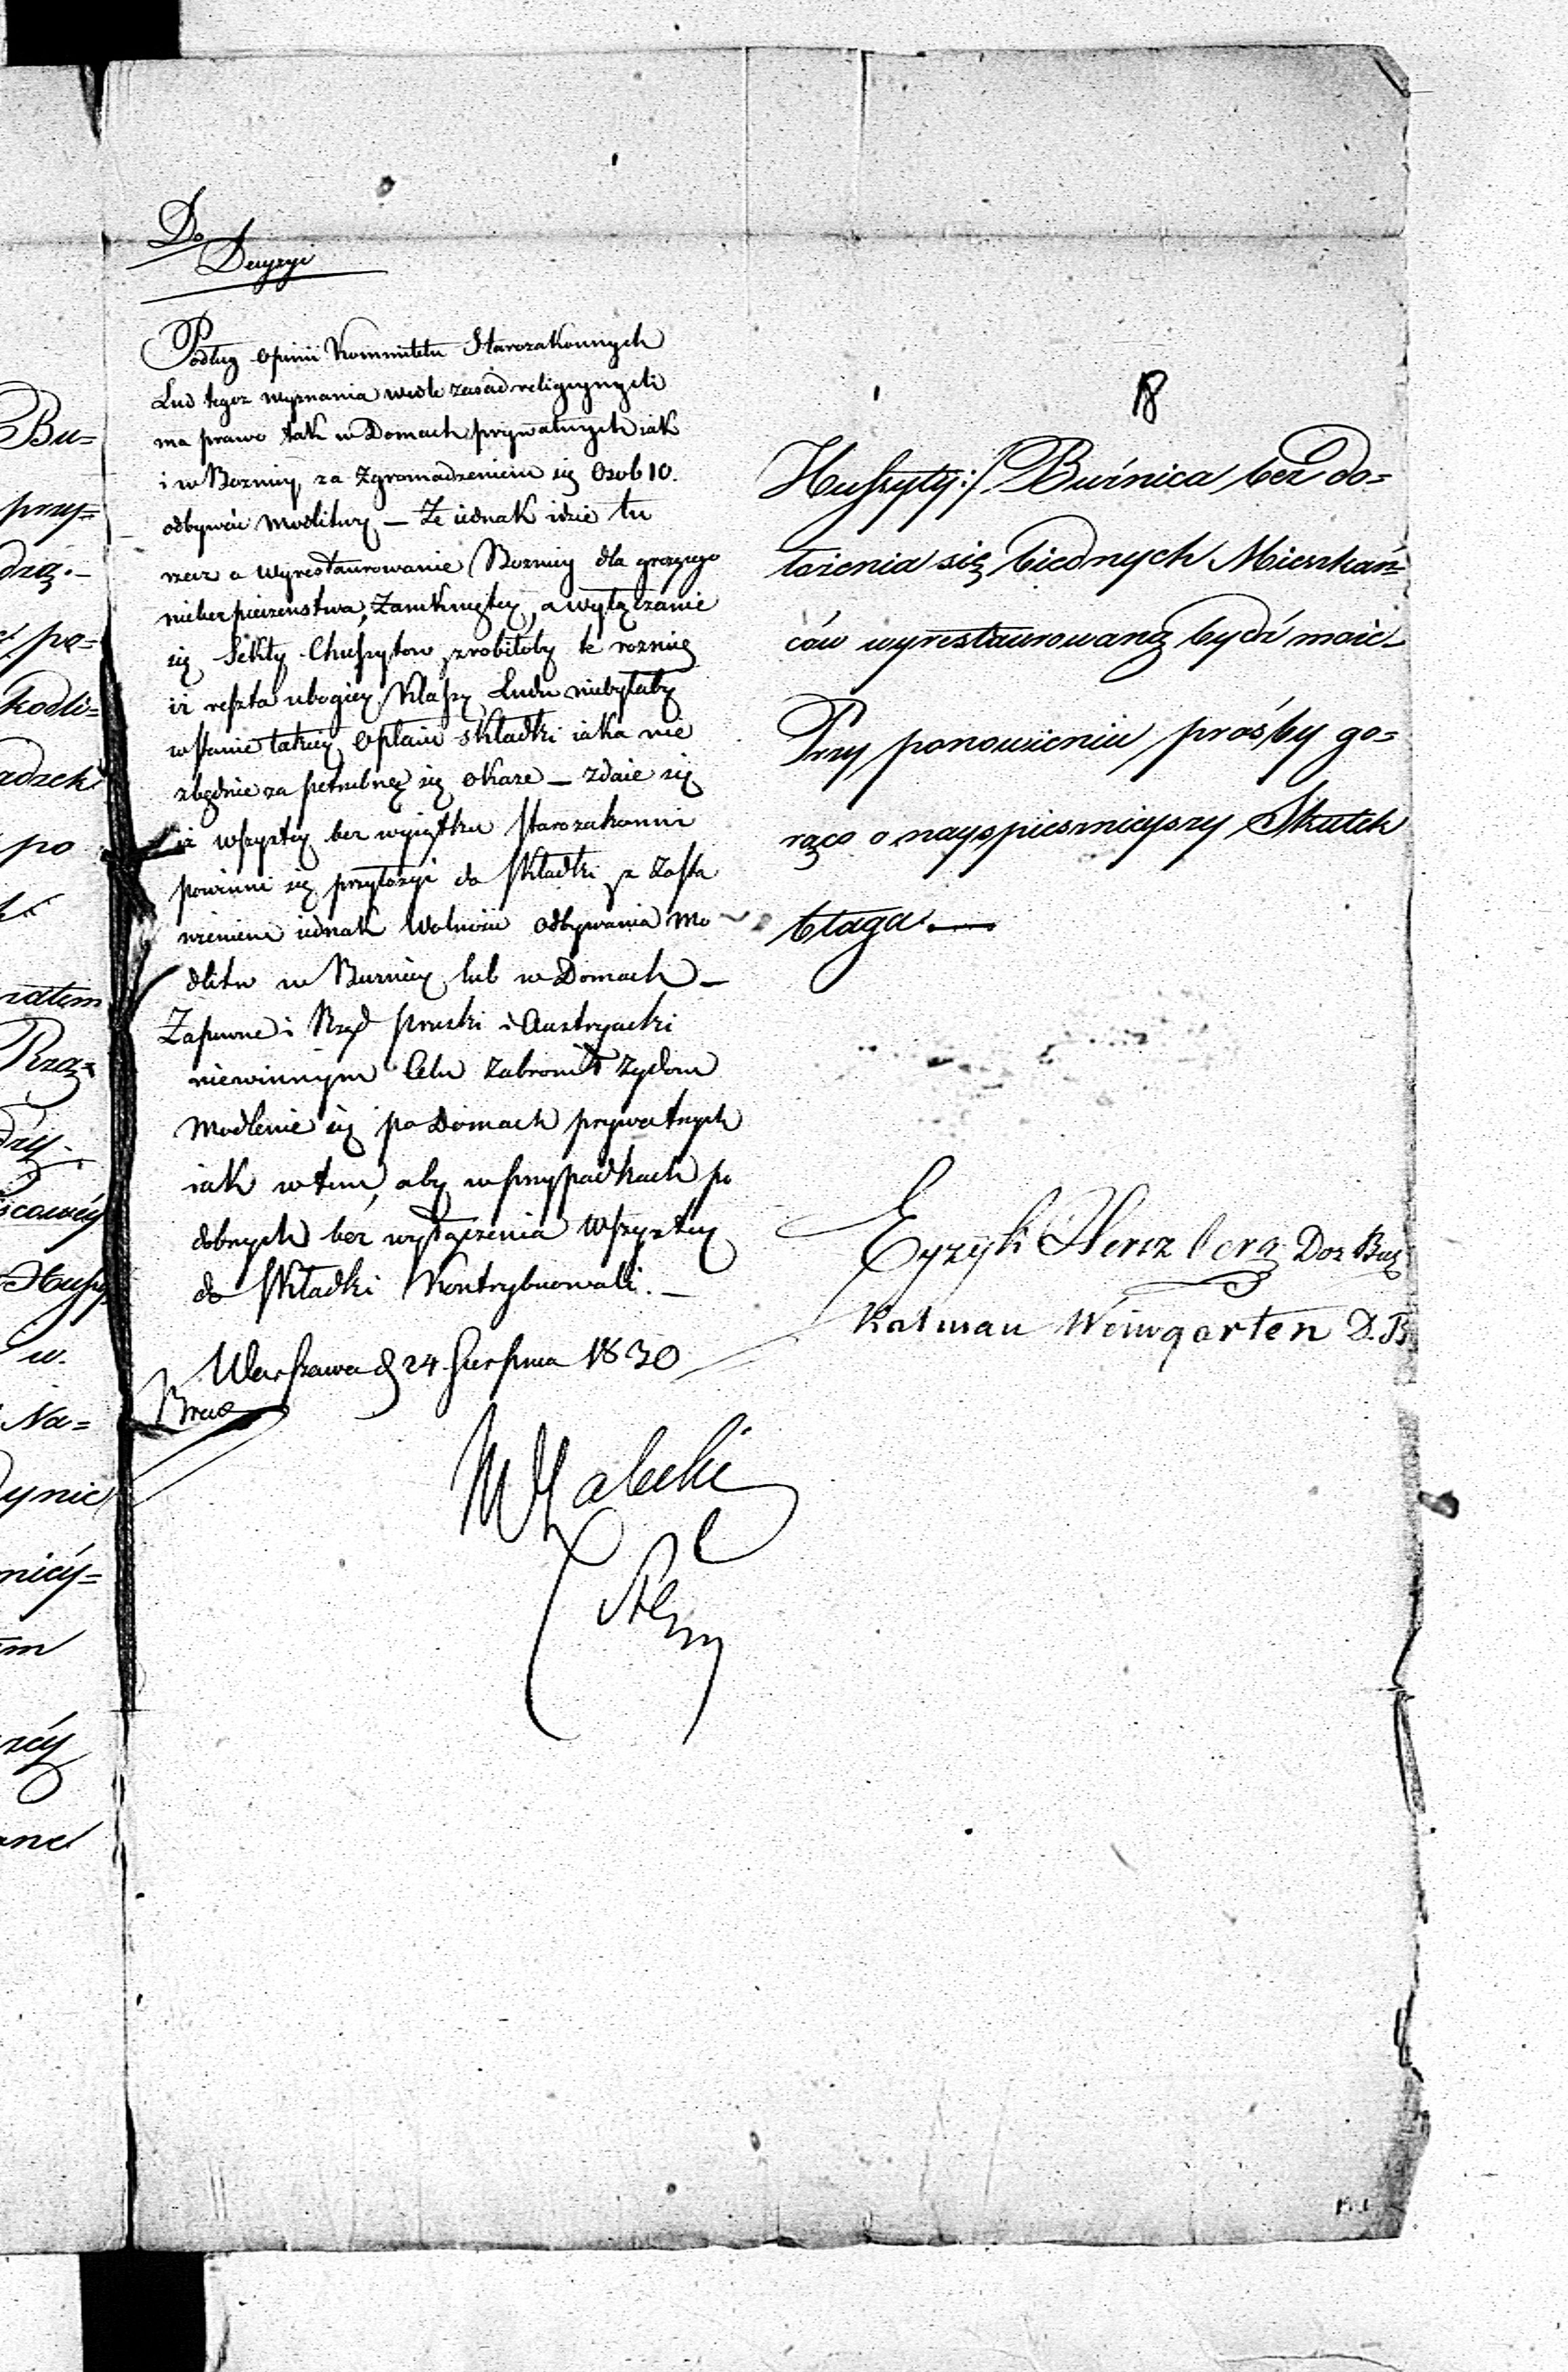 Do
Decyzyi
Podług opinii Kommitetu Starozakonnych
Lud tegoż wyznania wedle zasad religiynych
ma prawo tak w Domach prywatnych iak
i w Boznicy za zgromadzeniem się Osob 10.
odbywać modlitwy — Że iednak idzie tu
rzecz o wyrestaurowanie Boznicy dla grożącego
niebezpieczenstwa, zamkniętey, a wyłączanie
się Sekty Chussytow zrobiłoby te roznicę
iż reszta ubogiey Klassy Ludu niebyłaby
w stanie takiey opłacić składki iaka nie
zbędnie za potrzebną się okaże — zdaie się
iż wszyscy bez wyiątku starozakonni
powinni się przyłożyć do składki z zosta
wieniem iednak wolności odbywania mo
dlitw w Bużnicy lub w Domach —
Zapewne i Rząd pruski i Austryacki
niewinnym Celu zabronił żydom
modlenie się po Domach prywatnych
iak w tem, aby w przypadkach po
dobnych bez wyłączenia wszyscy
do składki kontrybuowali. —
Warszawa d 24 Sierpnia 1830
8
Hussyty:/ Buźnica bez do=
łożenia się biednych Mieszkań=
ców wyrestaurowaną bydź może
Przy ponowieniu prośby go=
rąco o nayspiesznieyszy Skutek
błaga. —
Eyzyk Hercz berg Doz Buz
Kalman Weinngarten D. B
Bu=
przy=
dzą. —
po=
kodli=
adzek
po
zatem
Rzą=
dzy
scowéy
Hussy
w.
Na=
ynie
niéy=
em
zéy
ane